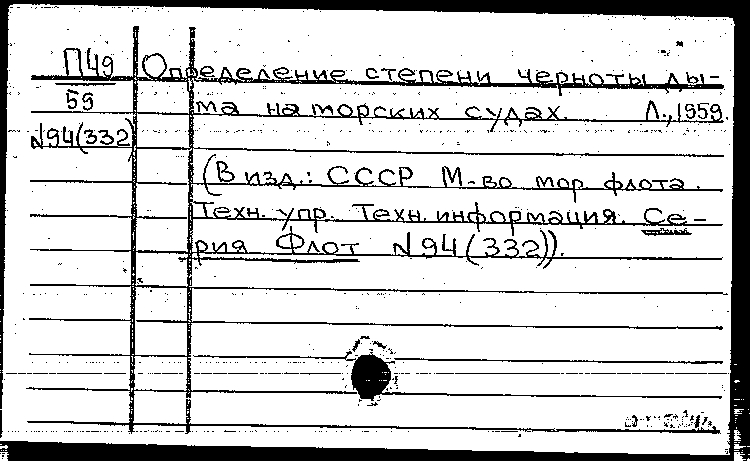 П49 Определение степени черноты ды-
59 ма на морских судах. Л., 1959.
№94(332)
(В изд.: СССР М-во мор. флота.
Техн. упр. Техн. информация. Се-
рия Флот №94(332)).